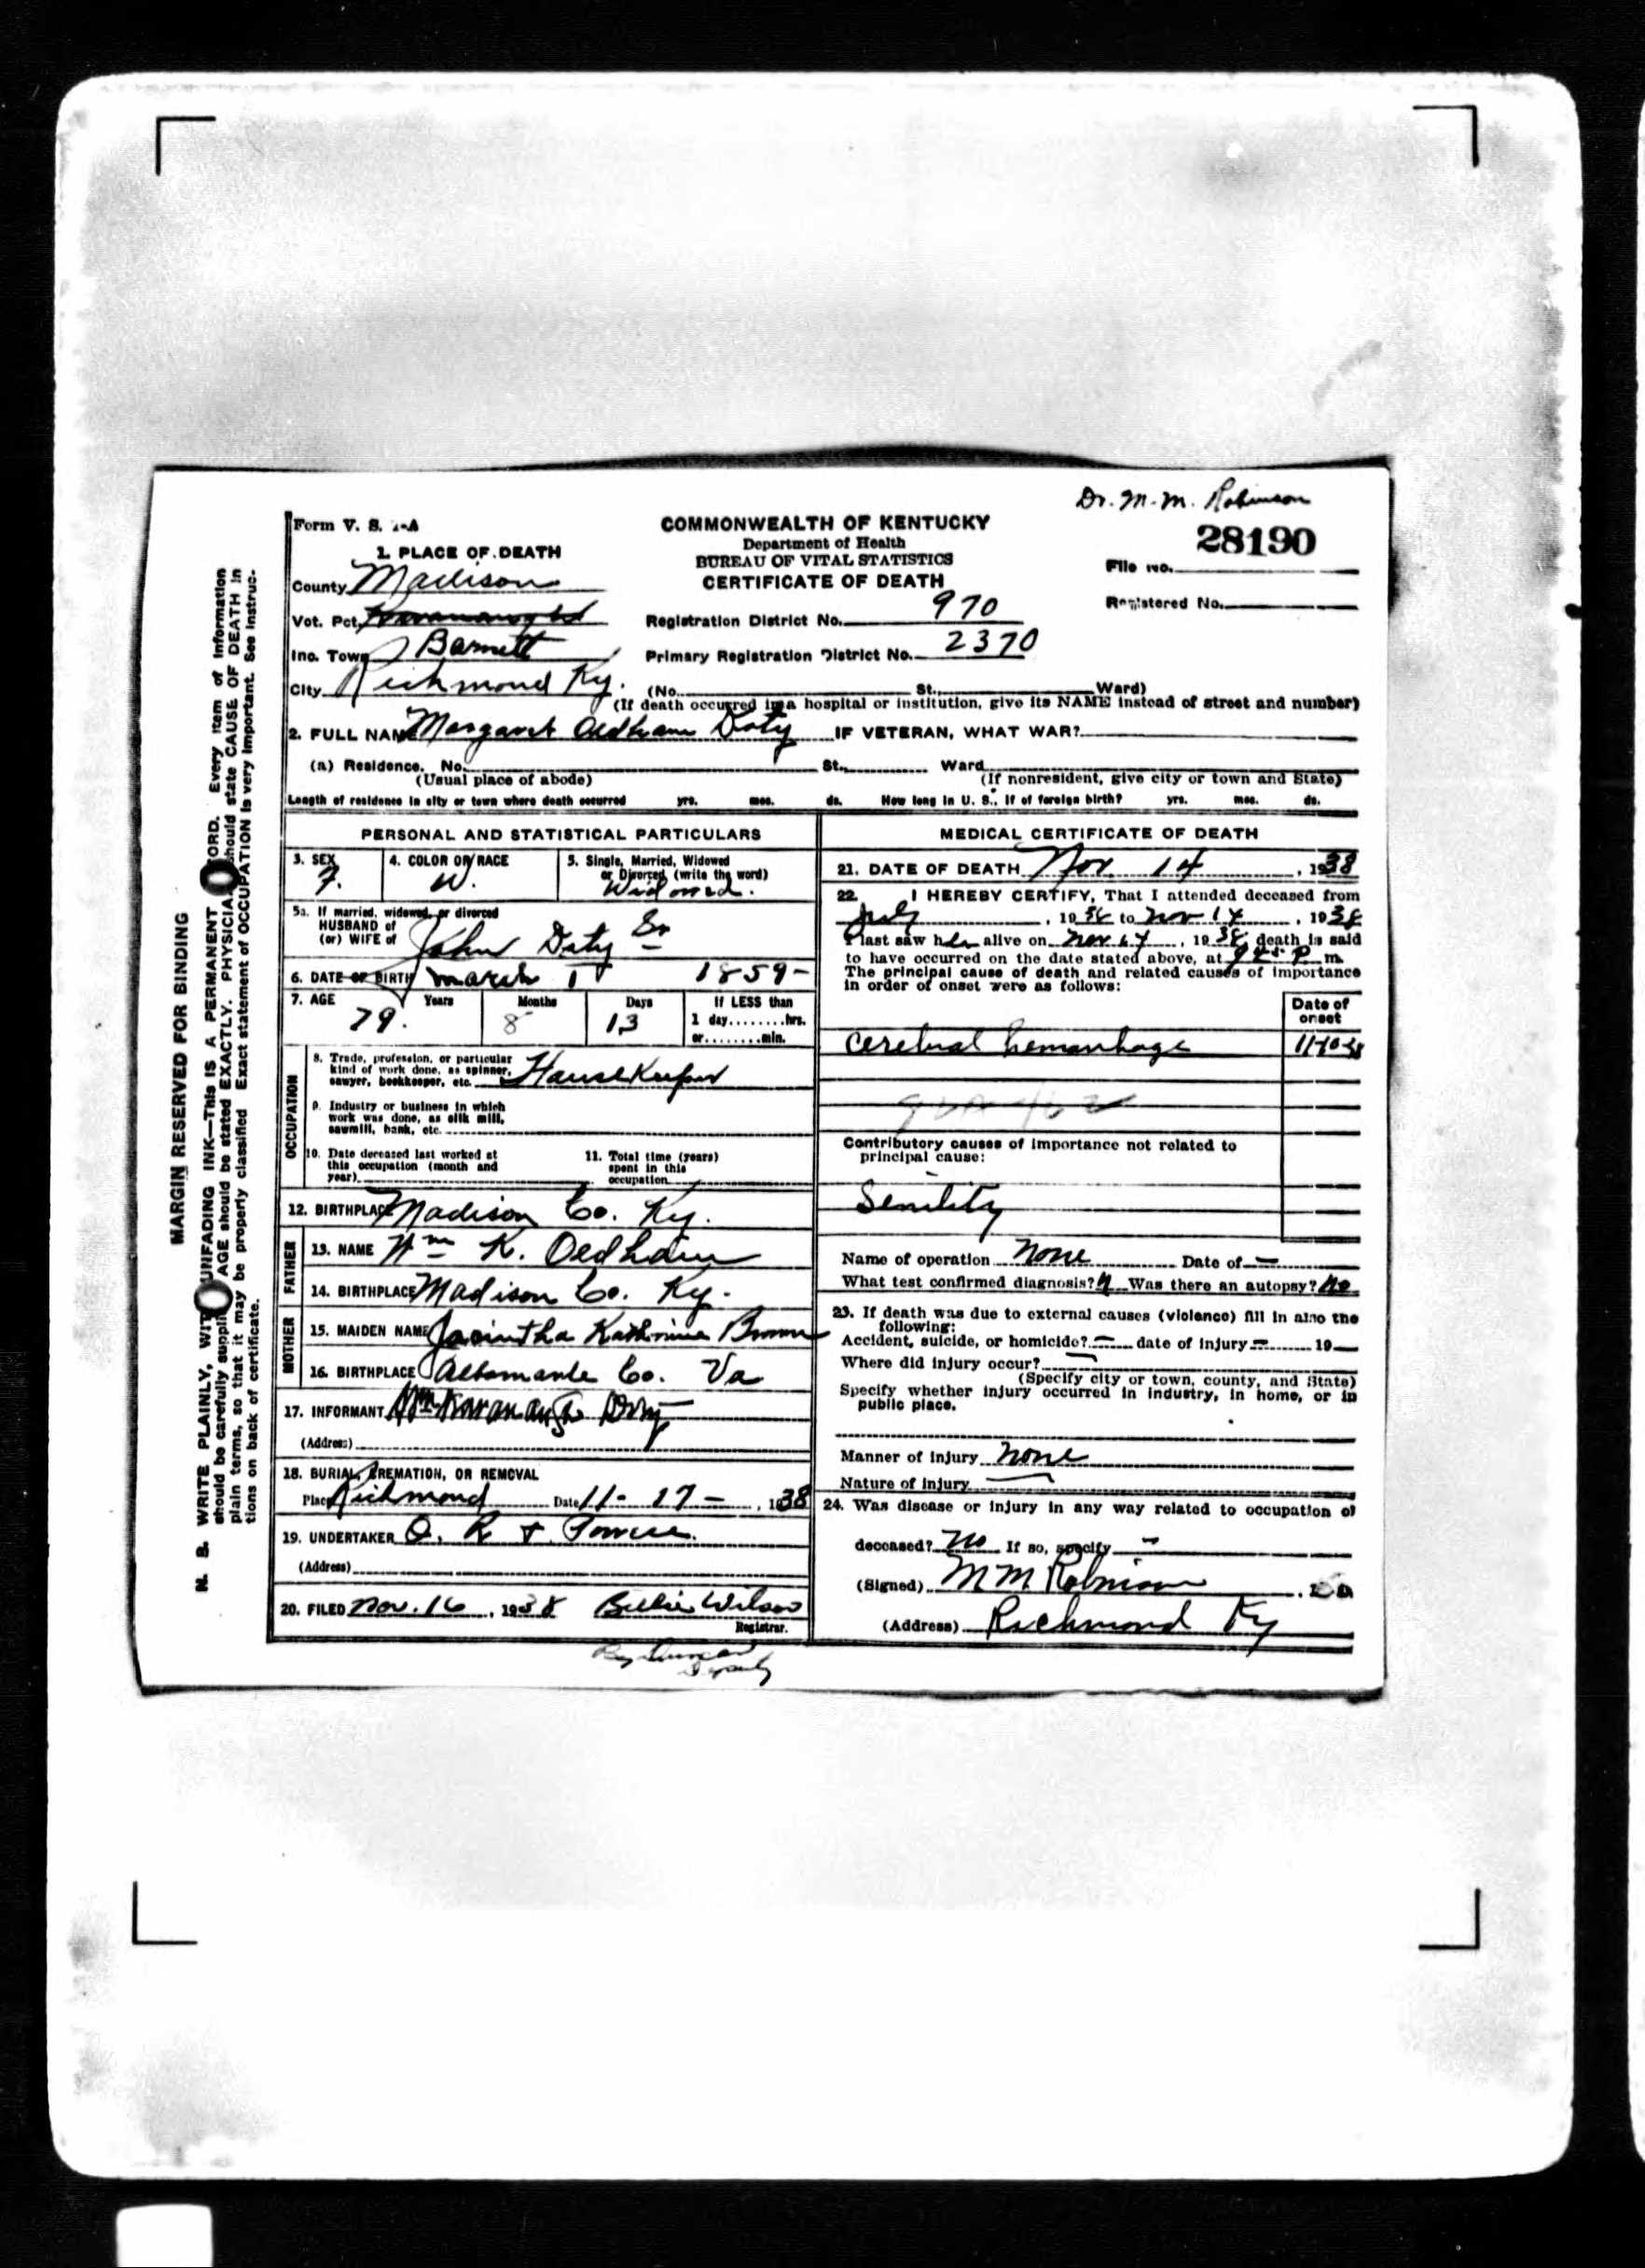 Dr. M. M. Robinson
Form V. S. 1-A
COMMONWEALTH OF KENTUCKY
Department of Health
BUREAU OF VITAL STATISTICS
CERTIFICATE OF DEATH
28190
File No.
Registered No.
1. PLACE OF DEATH
County Madison
Vot. Pct.
Inc. Town Barnett
City Richmond Ky.
Registration District No. 970
Primary Registration District No. 2370
(No. St., Ward)
(If death occurred in a hospital or institution, give its NAME instead of street and number)
2. FULL NAME Margaret Oldham Doty IF VETERAN, WHAT WAR?
(a) Residence. No. St., Ward
(Usual place of abode) (If nonresident, give city or town and State)
Length of residence in city or town where death occurred yrs. mos. ds. How long in U. S., if of foreign birth? yrs. mos. ds.
PERSONAL AND STATISTICAL PARTICULARS
3. SEX F.
4. COLOR OR RACE W.
5. Single, Married, Widowed
or Divorced (write the word)
Widowed.
5a. If married, widowed, or divorced
HUSBAND of
(or) WIFE of John Doty Sr
6. DATE OF BIRTH March 1 1859-
7. AGE Years Months Days If LESS than
79. 8 13 1 day........hrs.
or........min.
OCCUPATION
8. Trade, profession, or particular
kind of work done, as spinner,
sawyer, bookkeeper, etc. HouseKeeper
9. Industry or business in which
work was done, as silk mill,
sawmill, bank, etc.
10. Date deceased last worked at
this occupation (month and
year)
11. Total time (years)
spent in this
occupation
12. BIRTHPLACE Madison Co. Ky.
FATHER
13. NAME Wm K. Oldham
14. BIRTHPLACE Madison Co. Ky.
MOTHER
15. MAIDEN NAME Jacintha Katherine Brown
16. BIRTHPLACE Albemarle Co. Va
17. INFORMANT Wm Kavanaugh Doty
(Address)
18. BURIAL, CREMATION, OR REMOVAL
Place Richmond Date 11-17-, 1938
19. UNDERTAKER O. R. +
(Address)
20. FILED Nov. 16, 1938 Billie Wilson
Registrar.
By
Deputy
MEDICAL CERTIFICATE OF DEATH
21. DATE OF DEATH Nov. 14, 1938
22. I HEREBY CERTIFY, That I attended deceased from
July, 19 to Nov 14, 1938
I last saw her alive on Nov 14, 1938, death is said
to have occurred on the date stated above, at P m.
The principal cause of death and related causes of importance
in order of onset were as follows:
Date of
onset
Cerebral hemorrhage
Contributory causes of importance not related to
principal cause:
Senility
Name of operation none Date of —
What test confirmed diagnosis? Was there an autopsy? No
23. If death was due to external causes (violence) fill in also the
following:
Accident, suicide, or homicide? — date of injury — 19—
Where did injury occur? —
(Specify city or town, county, and State)
Specify whether injury occurred in industry, in home, or in
public place.
Manner of injury none
Nature of injury —
24. Was disease or injury in any way related to occupation of
deceased? No If so, specify —
(Signed) M M Robinson
(Address) Richmond Ky
MARGIN RESERVED FOR BINDING
N. B. WRITE PLAINLY, WITH UNFADING INK—This IS A PERMANENT RECORD. Every item of information
should be carefully supplied. AGE should be stated EXACTLY. PHYSICIANS should state CAUSE OF DEATH in
plain terms, so that it may be properly classified. Exact statement of OCCUPATION is very important. See instruc-
tions on back of certificate.